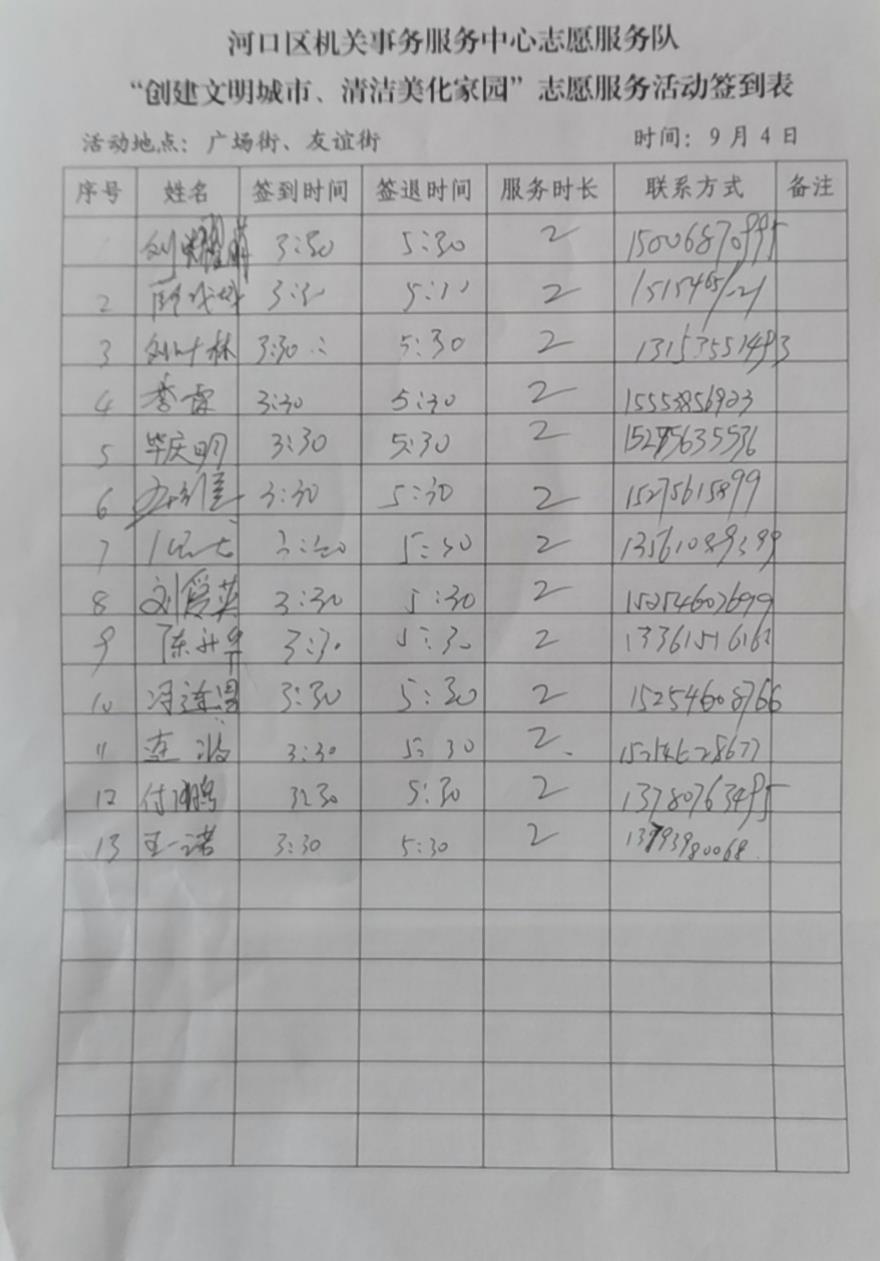 河口区机关事务服务中心志愿服务队
“创建文明城市、清洁美化家园”志愿服务活动签到表
活动地点：广场街、友谊街 时间：9月4日
序号 姓名 签到时间 签退时间 服务时长 联系方式 备注
刘耀 3:30 5:30 2 15006870995
2 2
3 刘叶林 3:30 5:30 2 13153551493
4 李霖 3:30 5:30 2 15553856923
5 毕庆明 3:30 5:30 2
6 3:30 5:30 2 15275615899
7 5:30 2 13561089399
8 刘爱英 3:30 5:30 2 15254607699
9 陈升华 3:30 5:30 2
10 冯连昌 3:30 5:30 2 15254608766
11 3:30 5:30 2
12 付鹏 3:30 5:30 2 13780763495
13 王一诺 3:30 5:30 2 13793980068